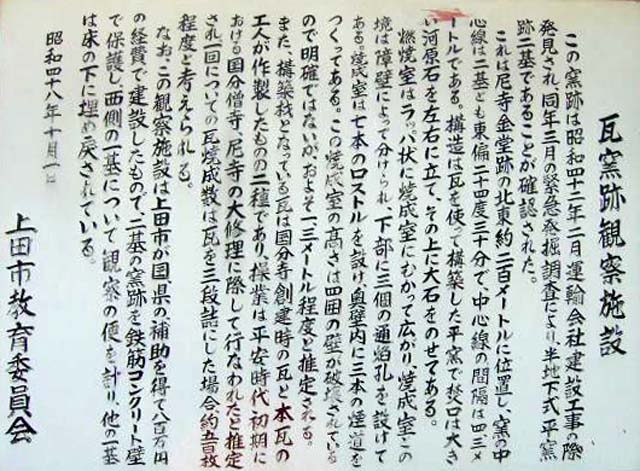 瓦窯跡観察施設
この窯跡は昭和四十二年二月運輸会社建設工事の際
発見され、同年三月の緊急発掘調査により、半地下式平窯
跡二基であることが確認された。
これは尼寺金堂跡の北東約二百メートルに位置し、窯の中
心線は二基とも東偏二十四度三十分で、中心線の間隔は四・三メ
ートルである。構造は瓦を使って構築した平窯で、焚口は大き
い河原石を左右に立て、その上に大石をのせてある。
燃焼室はラッパ状に焼成室にむかって広がり、焼成室との
境は障壁によって分けられ、下部に三個の通焔孔を設けて
ある。焼成室は七本のロストルを設け、奥壁内に三本の煙道を
つくってある。この焼成室の高さは四囲の壁が破壊されている
ので明確ではないが、およそ一・三メートル程度と推定される。
また、構築材となっている瓦は国分寺創建時の瓦と本瓦の
工人が作製したものの二種であり、操業は平安時代初期に
おける国分僧寺、尼寺の大修理に際して行なわれたと推定
され、一回についての瓦焼成数は瓦を三段詰にした場合約五百枚
程度と考えられる。
なお、この観察施設は上田市が国、県の補助を得て八百万円
の経費で建設したもので、二基の窯跡を鉄筋コンクリート壁
で保護し、西側の一基について観察の便を計り、他の一基
は床の下に埋め戻されている。
昭和四十八年十月一日
上田市教育委員会